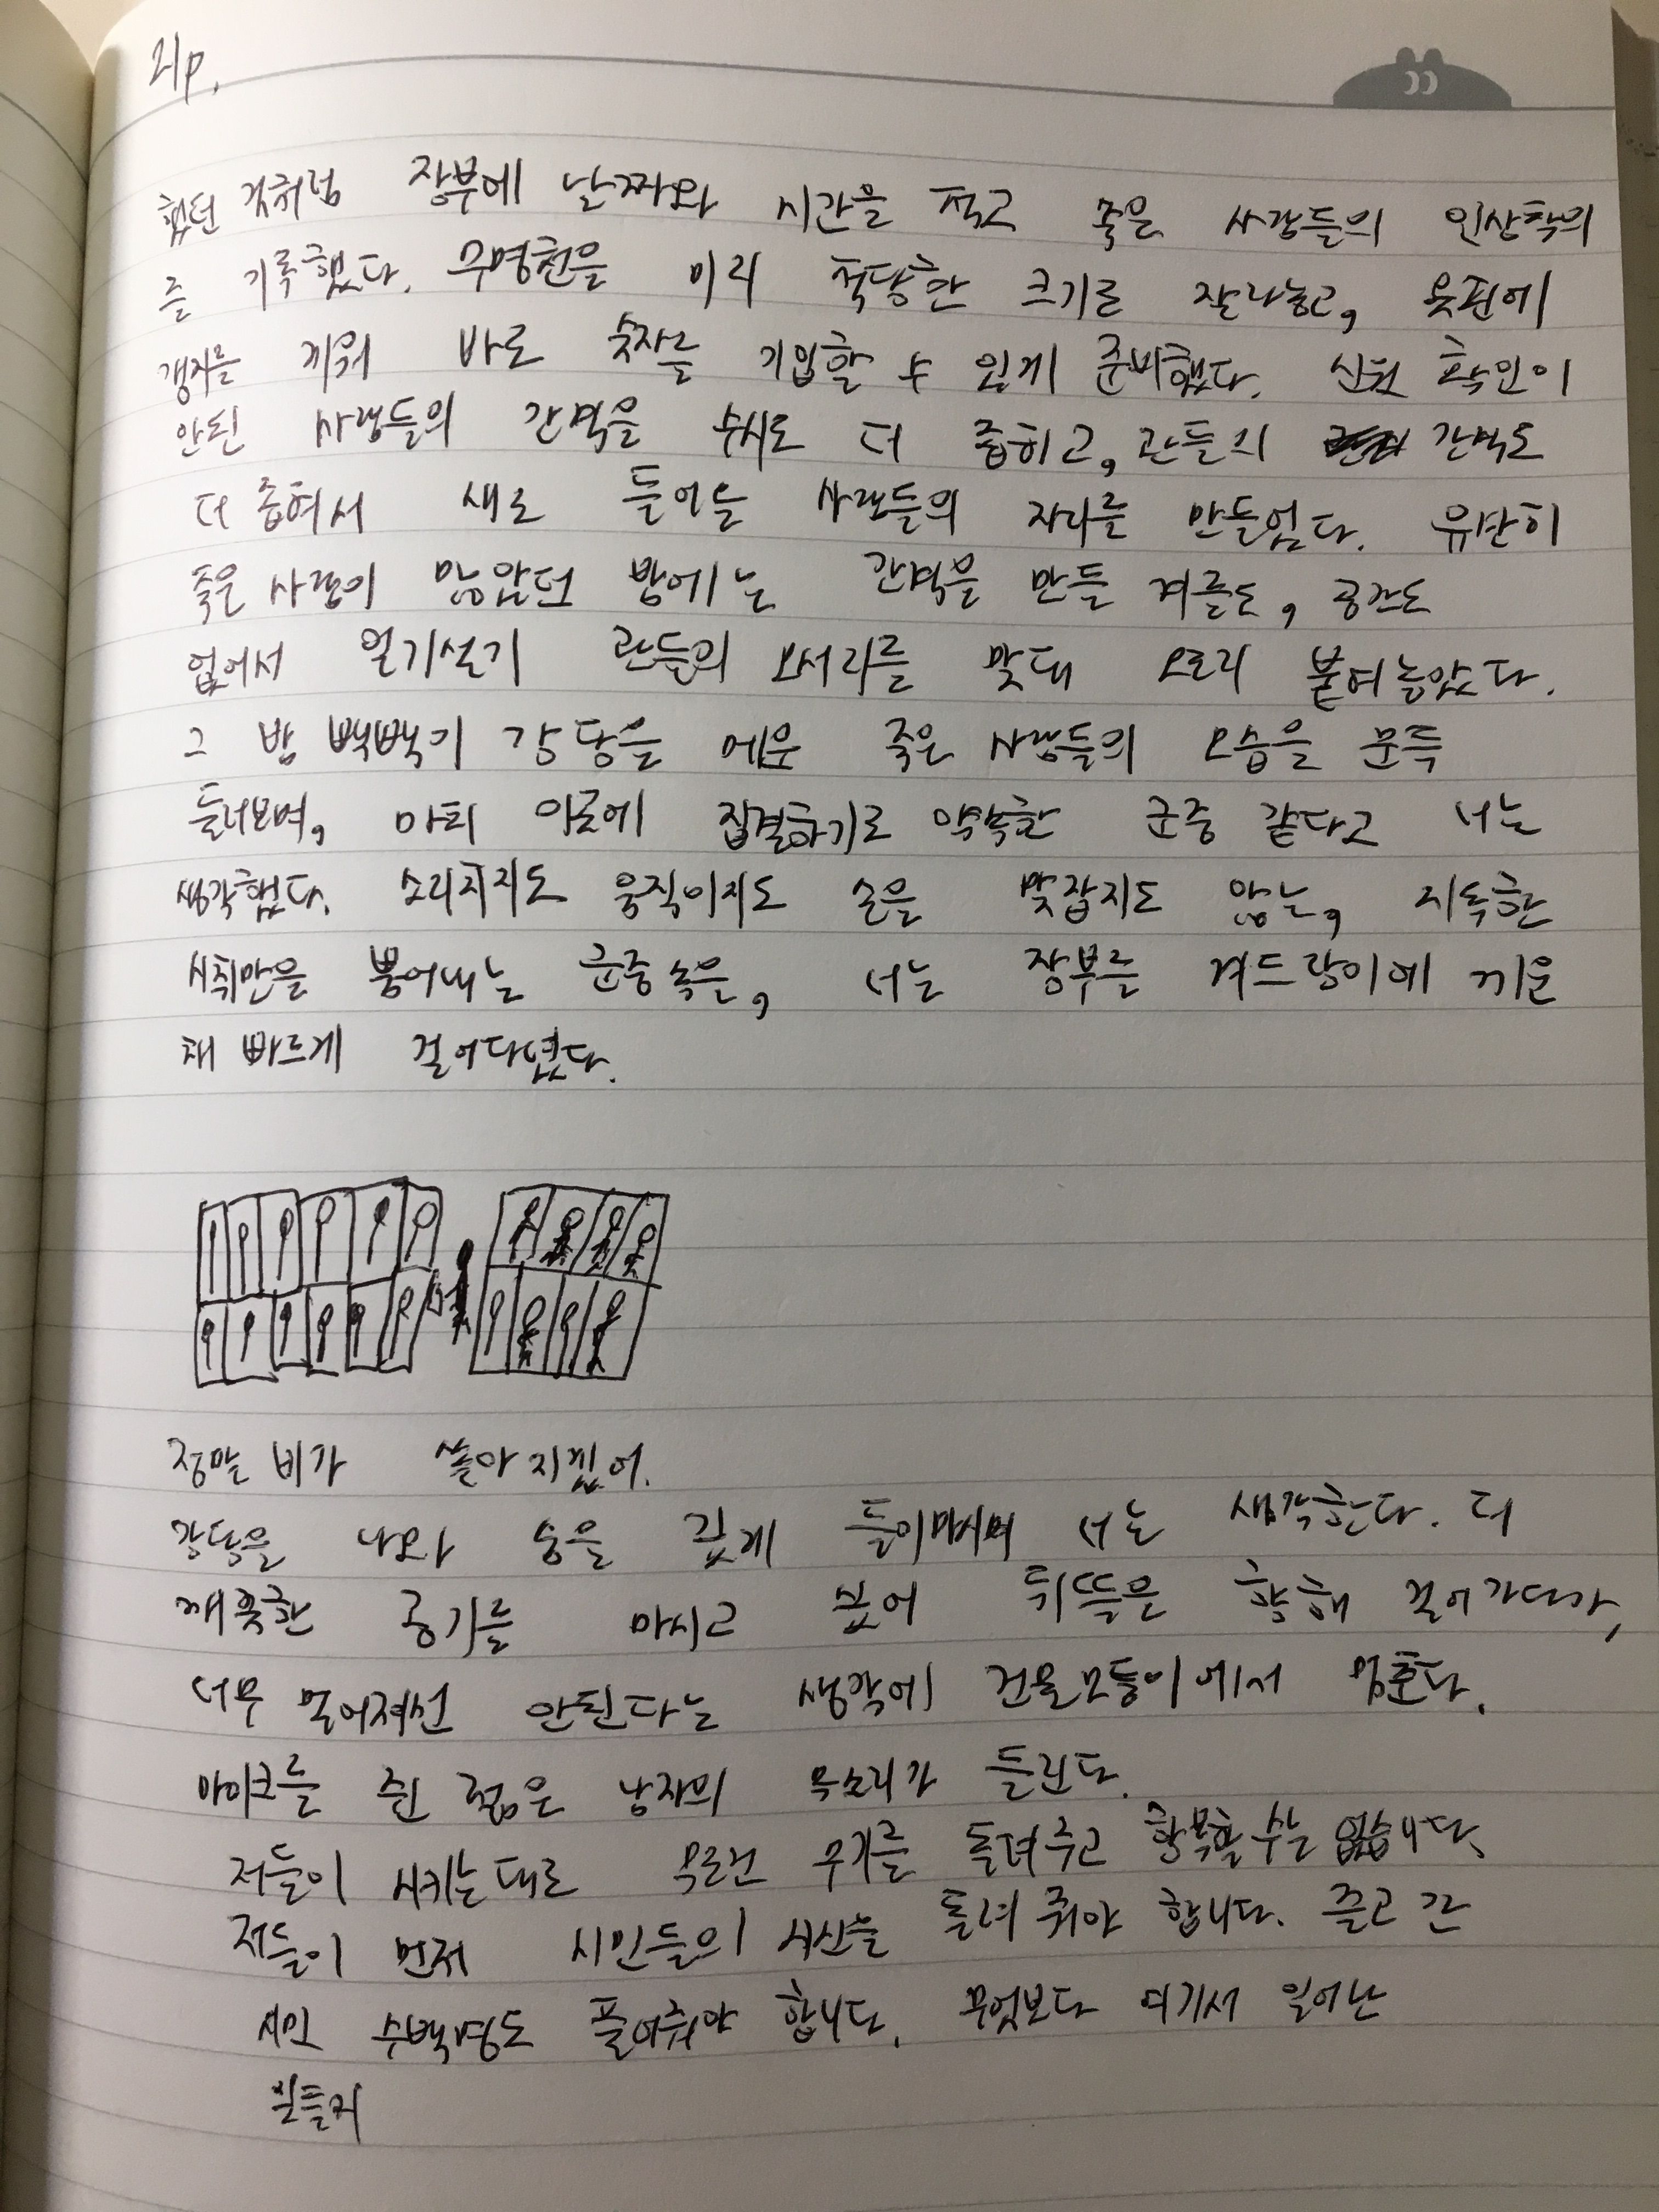 21p.
했던 것처럼 장부에 날짜와 시간을 적고 죽은 사람들의 인상착의
를 기록했다. 무명천을 미리 적당한 크기로 잘라놓고, 옷핀에
갱지를 끼워 바로 숫자를 기입할 수 있게 준비했다. 신원 확인이
안된 사람들의 간격을 수시로 더 좁히고, 관들의 간격도
더 좁혀서 새로 들어올 사람들의 자리를 만들었다. 유난히
죽은 사람이 많았던 밤에는 간격을 만들 겨를도, 공간도
없어서 얼기설기 관들의 모서리를 맞대 모로리 붙여놓았다.
그 밤 빽빽기 강당을 메운 죽은 사람들의 모습을 문득
둘러보며, 마치 이곳에 집결하기로 약속한 군중 같다고 너는
생각했다. 소리치지도 움직이지도 손을 맞잡지도 않는, 지독한
시취만을 뿜어내는 군중 속은, 너는 장부를 겨드랑이에 끼운
채 빠르게 걸어다녔다.
정말 비가 쏟아지겠어.
강당을 나와 숨을 깊게 들이마시며 너는 생각한다. 더
깨끗한 공기를 마시고 싶어 뒤뜰은 향해 걸어가다가,
너무 멀어져선 안된다는 생각에 건물모퉁이에서 멈춘다.
마이크를 쥔 젊은 남자의 목소리가 들린다.
저들이 시키는대로 무조건 무기를 돌려주고 항복할 수는 없습니다.
저들이 먼저 시민들의 시신을 돌려 줘야 합니다. 끌고 간
시민 수백명도 풀어줘야 합니다. 무엇보다 여기서 일어난
일들의